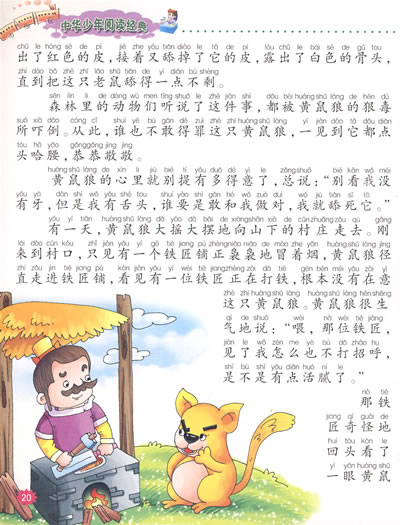 中华少年阅读经典
chū le hóng sè de pí jiē zhe yòu tiǎn diào le tā de pí lòu chū le bái sè de gǔ tou
出了红色的皮,接着又舔掉了它的皮,露出了白色的骨头,
zhí dào bǎ zhè zhī lǎo shǔ tiǎn de yì diǎn bú shèng
直到把这只老鼠舔得一点不剩。
sēn lín lǐ de dòng wù men tīng shuō le zhè jiàn shì dōu bèi huáng shǔ láng de hěn dú
森林里的动物们听说了这件事,都被黄鼠狼的狠毒
suǒ xià dǎo cóng cǐ shuí yě bù gǎn dé zuì zhè zhī huáng shǔ láng yí jiàn dào tā dōu diǎn
所吓倒。从此,谁也不敢得罪这只黄鼠狼,一见到它都点
tóu hā yāo gōng gōng jìng jìng
头哈腰,恭恭敬敬。
huáng shǔ láng de xīn lǐ jiù bié tí yǒu duō dé yì le zǒng shuō bié kàn wǒ méi
黄鼠狼的心里就别提有多得意了,总说:“别看我没
yǒu yá dàn shì wǒ yǒu shé tou shuí yào shì gǎn hé wǒ zuò duì wǒ jiù tiǎn sǐ tā
有牙,但是我有舌头,谁要是敢和我做对,我就舔死它。”
yǒu yì tiān huáng shǔ láng dà yáo dà bǎi de xiàng shān xià de cūn zhuāng zǒu qù gāng
有一天,黄鼠狼大摇大摆地向山下的村庄走去。刚
lái dào cūn kǒu zhǐ jiàn yǒu yí gè tiě jiang pù zhèng niǎo niǎo de mào zhe yān huáng shǔ láng jìng
来到村口,只见有一个铁匠铺正袅袅地冒着烟,黄鼠狼径
zhí zǒu jìn tiě jiang pù kàn jiàn yǒu yí wèi tiě jiang zhèng zài dǎ tiě gēn běn méi yǒu zài yì
直走进铁匠铺,看见有一位铁匠正在打铁,根本没有在意
zhè zhī huáng shǔ láng huáng shǔ láng hěn shēng
这只黄鼠狼。黄鼠狼很生
qì de shuō wèi nà wèi tiě jiang
气地说:“喂,那位铁匠,
jiàn le wǒ zěn me yě bù dǎ zhāo hu
见了我怎么也不打招呼,
shì bú shì yǒu diǎn huó nì le
是不是有点活腻了。”
nà tiě
那铁
jiang qí guài de
匠奇怪地
huí tóu kàn le
回头看了
yì yǎn huáng shǔ
一眼黄鼠
20